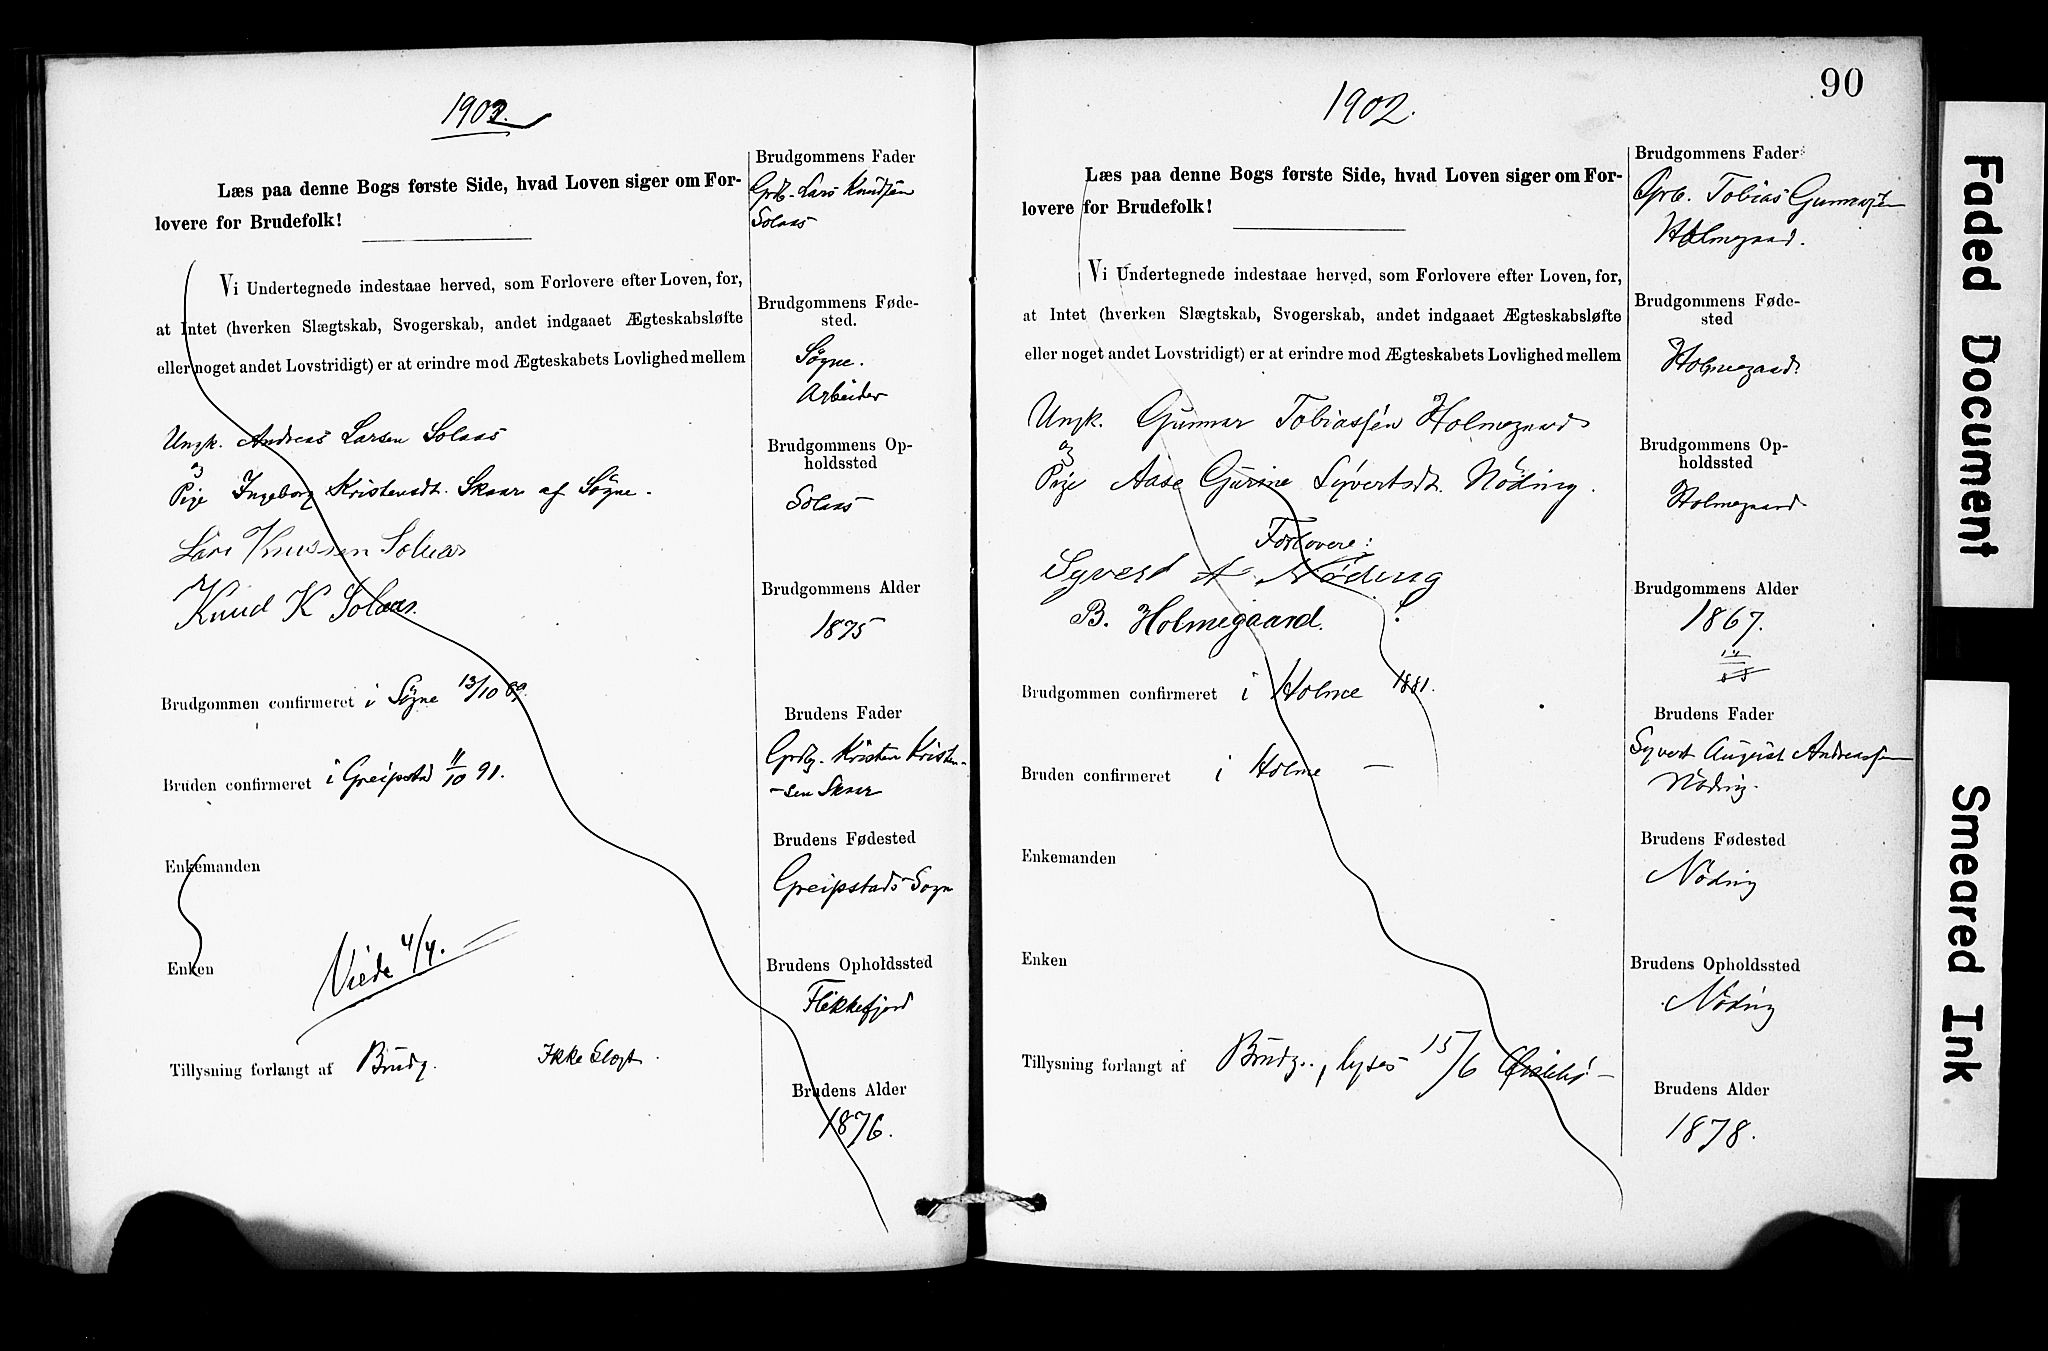 1902.
Læs paa denne Bogs første Side, hvad Loven siger om For-
lovere for Brudefolk!
Vi Undertegnede indestaae herved, som Forlovere efter Loven, for,
at Intet (hverken Slægtskab, Svogerskab, andet indgaaet Ægteskabsløfte
eller noget andet Lovstridigt) er at erindre mod Ægteskabets Lovlighed mellem
Ungk. Andreas Larsen Solaas
og
Pige Ingeborg Kristensdt. Skaar af Søgne.
Lars Knussen Solaas
Knud K Solaas.
Brudgommen confirmeret i Søgne 13/10 89.
Bruden confirmeret i Greipstad 11/10 91.
Enkemanden
Enken
Viede 4/4.
Tillysning forlangt af Brudg. Ikke Slægt.
Brudgommens Fader
Grdb. Lars Knudsen
Solaas
Brudgommens Føde-
sted.
Søgne.
Arbeider
Brudgommens Op-
holdssted
Solaas
Brudgommens Alder
1875
Brudens Fader
Grdbg. Kristen Kristen-
-sen Skaar
Brudens Fødested
Greipstads Sogn
Brudens Opholdssted
Flekkefjord
Brudens Alder
1876.
90
1902.
Læs paa denne Bogs første Side, hvad Loven siger om For-
lovere for Brudefolk!
Vi Undertegnede indestaae herved, som Forlovere efter Loven, for,
at Intet (hverken Slægtskab, Svogerskab, andet indgaaet Ægteskabsløfte
eller noget andet Lovstridigt) er at erindre mod Ægteskabets Lovlighed mellem
Ungk. Gunnar Tobiassen Holmegaard
og
Pige Aase Gurine Syvertsdt. Nöding.
Forlovere:
Syvert A Nöding
B. Holmegaard.
Brudgommen confirmeret i Holme 1881.
Bruden confirmeret i Holme —
Enkemanden
Enken
Tillysning forlangt af Brudg., lyses 15/6
Brudgommens Fader
Grb. Tobias Gunnarsen
Holmegaard.
Brudgommens Føde-
sted
Holmegaard.
Brudgommens Op-
holdssted
Holmegaard.
Brudgommens Alder
1867.
Brudens Fader
Syvert August Andreassen
Nöding.
Brudens Fødested
Nöding
Brudens Opholdssted
Nöding
Brudens Alder
1878.
Faded Document
Smeared Ink